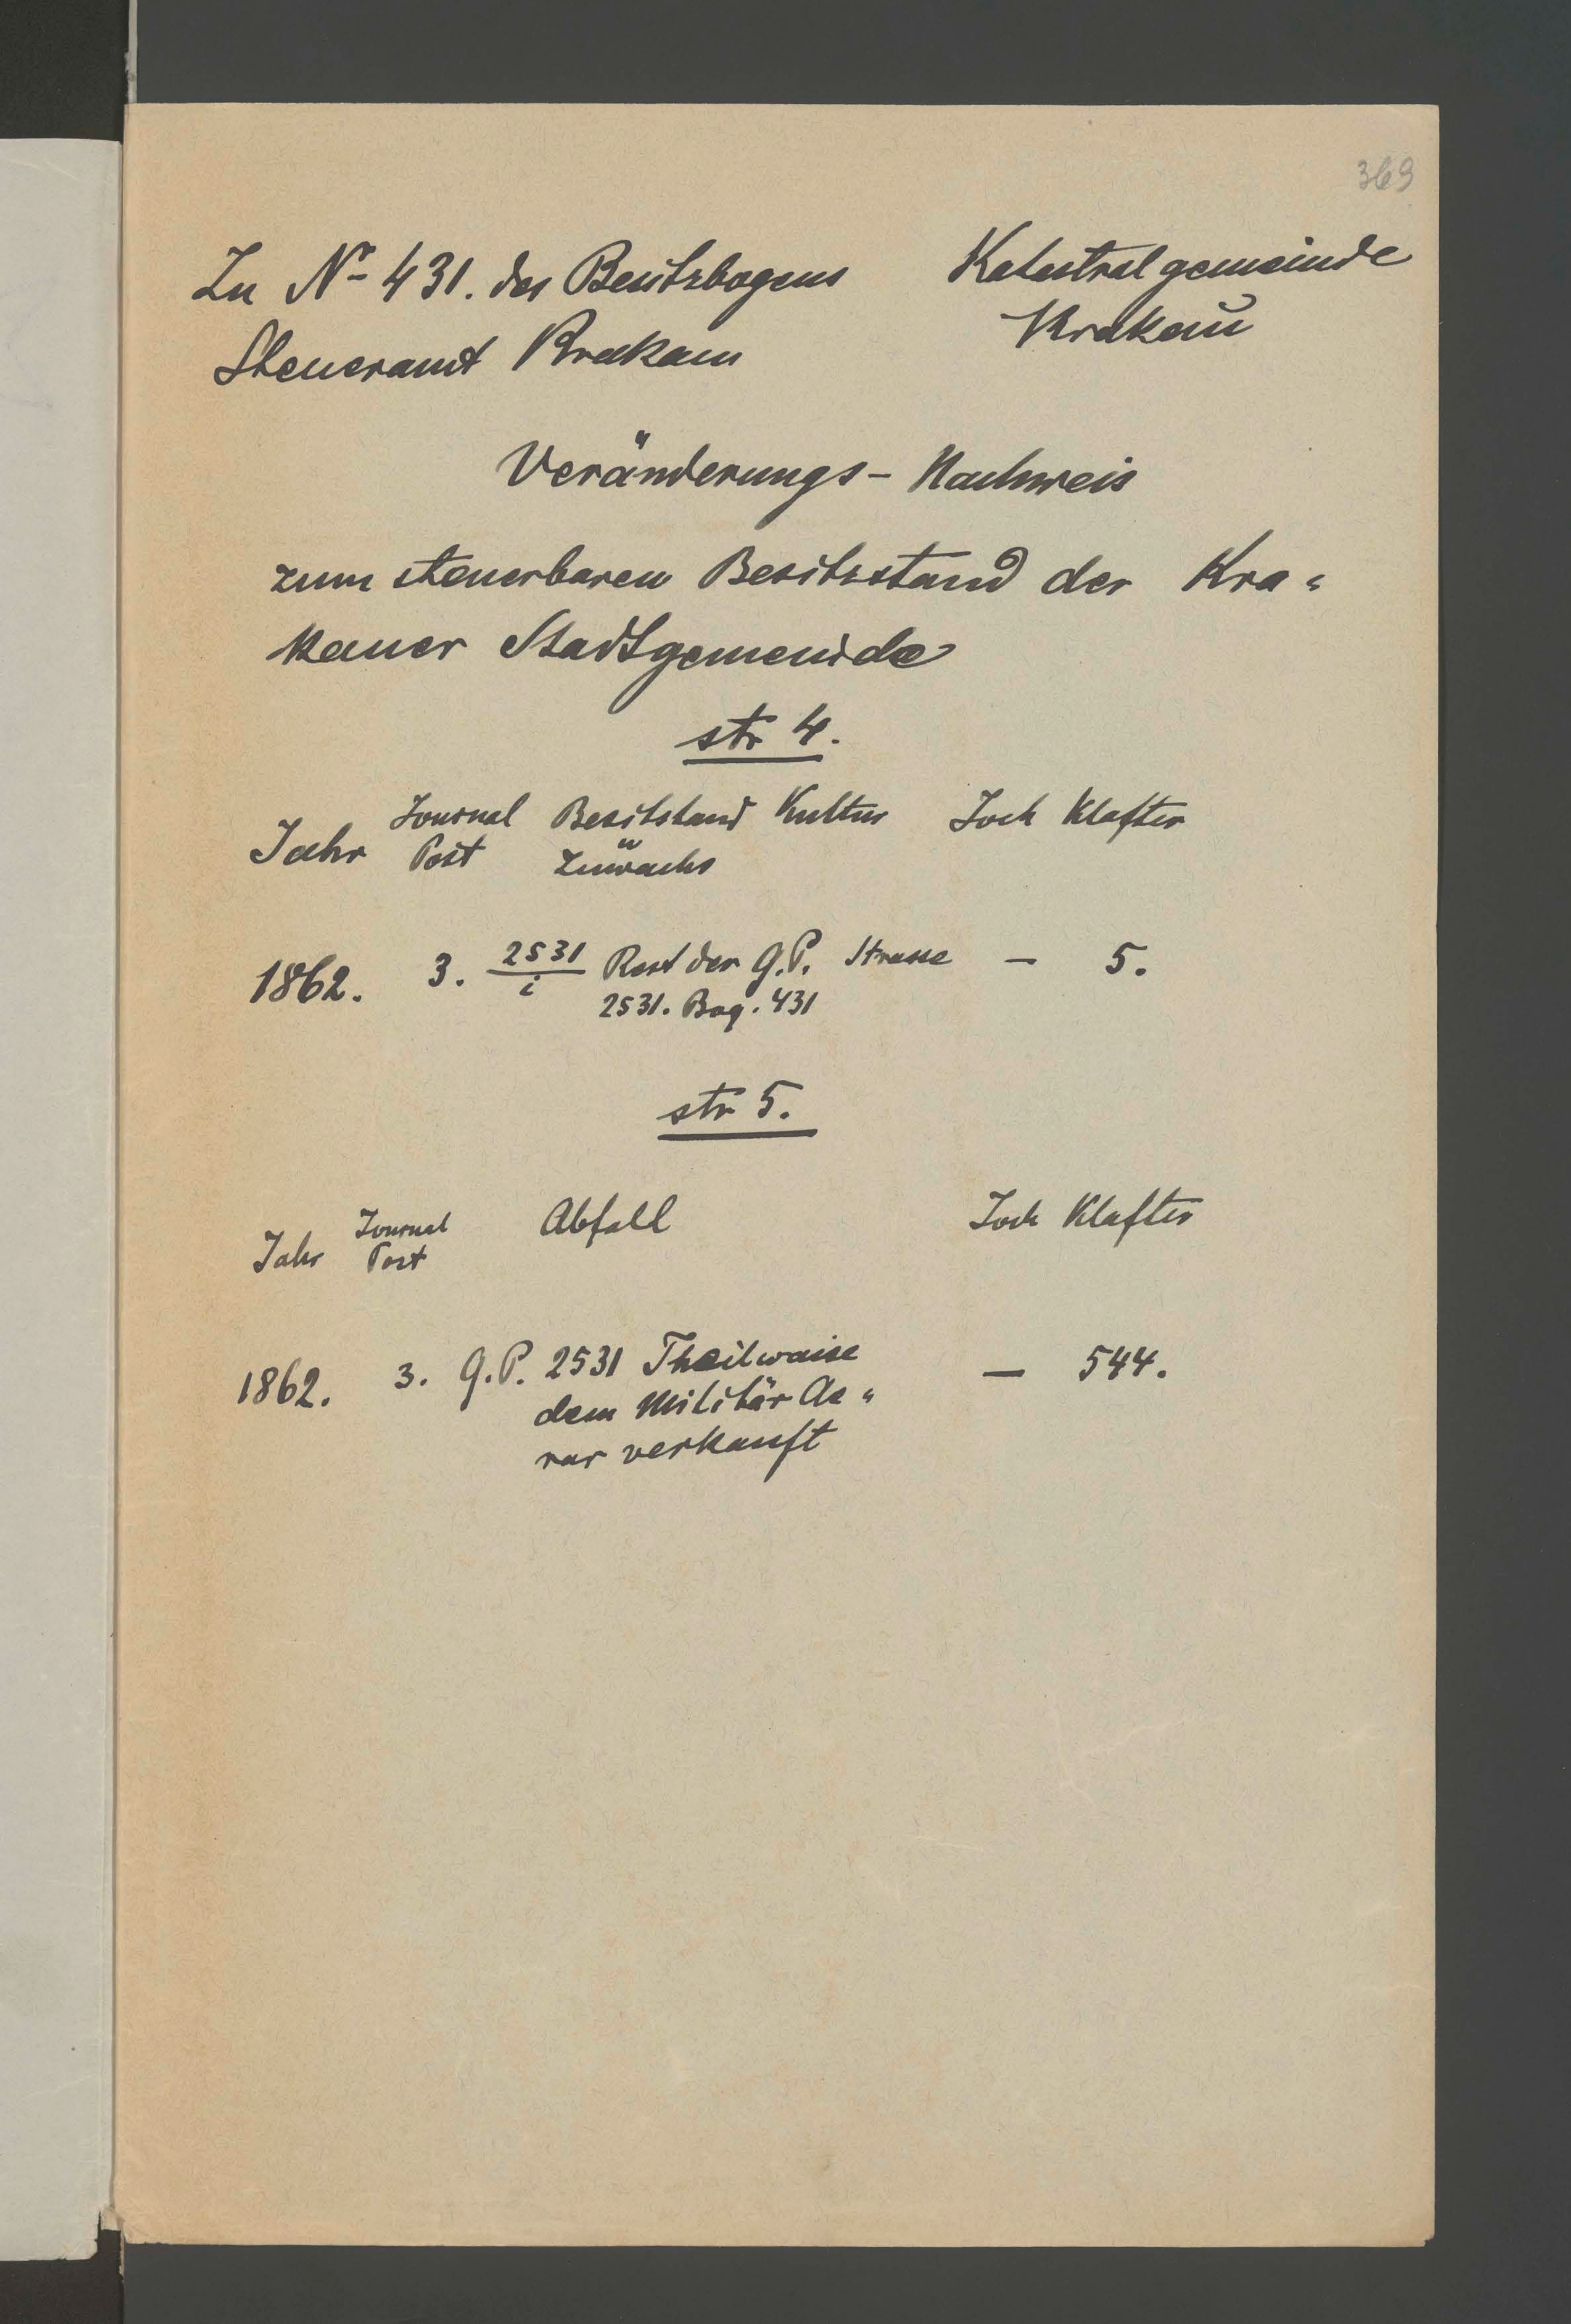 369
Zu Nr 431. des Besitzbogens
Steueramt Krakau
Katastralgemeinde
Krakau
Veränderungs - Nachweis
zum steuerbaren Besitzstand der Kra"
kauer Stadtgemeinde
str 4.
Jahr Journal Post Besitstand Zuwachs Kultur Joch Klafter
1862. 3. 2531/i Rest der G.P. Strasse — 5.
2531. Bog. 431
str 5.
Jahr Journal Post Abfall Joch Klafter
1862. 3. G.P. 2531 Theilweise — 544.
dem Militär Ae"
rar verkauft